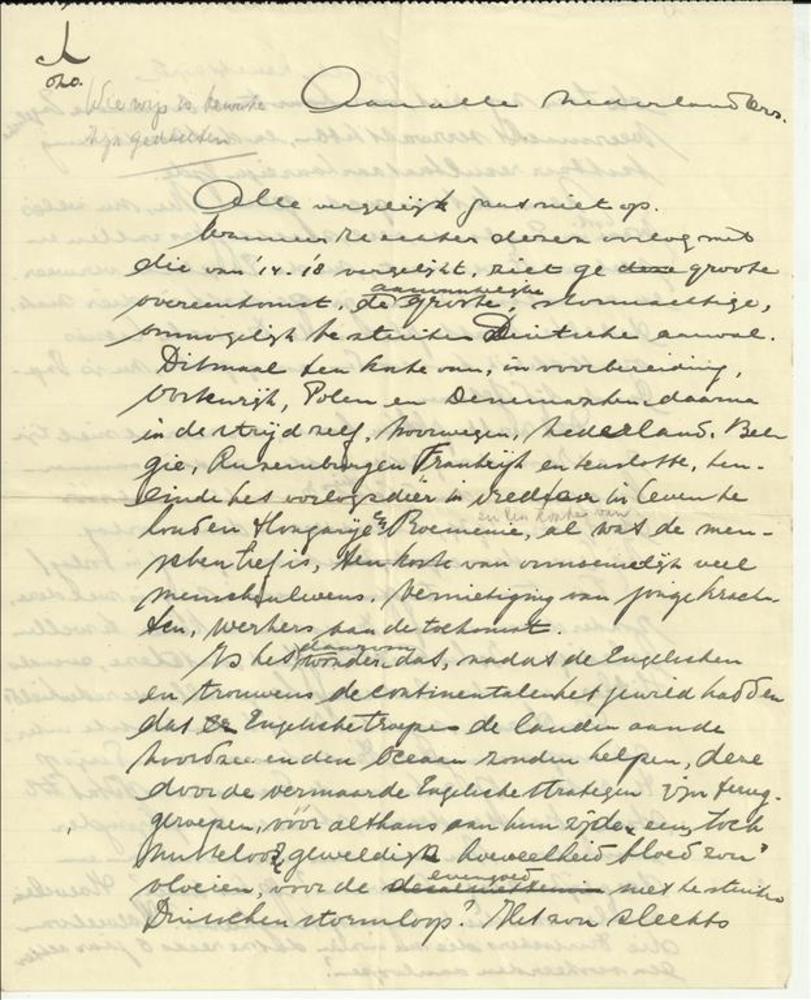 Aan alle Nederlanders.
Wie wijs is bewaake
zijn gedachten
Alle vergelijk gaat niet op.
Wanneer ge echter dezen oorlog met
die van '14-'18 vergelijkt, ziet ge deze groote
overeenkomst. de aanvankelijke groote, stormachtige,
onmogelijk te stuiten Duitsche aanval.
Ditmaal ten koste van, in voorbereiding,
Oostenrijk, Polen en Denemarken daarna
in de strijd zelf, Noorwegen, Nederland. Bel-
gie, Luxemburg en Frankrijk en tenslotte, ten-
einde het oorlogsdier in in leven te
houden Hongarije en Roemenie, en ten koste van al wat de men-
schen lief is, ten koste van onnoemelijk veel
menschenlevens. Vernietiging van jonge krach-
ten, werkers aan de toekomst.
Is het wonder, dat, nadat de Engelschen
en trouwens de continentalen het gewild hadden
dat Engelsche troepen de landen aan de
Noordzee en den Oceaan zouden helpen, deze
door de vermaarde Engelsche strategen zijn terug-
geroepen, vóór althans aan hun zijde, een, toch
nutteloos, geweldige hoeveelheid bloed zou
vloeien, voor de evengoed niet te stuiten
Duitschen stormloop? Het zou slechts